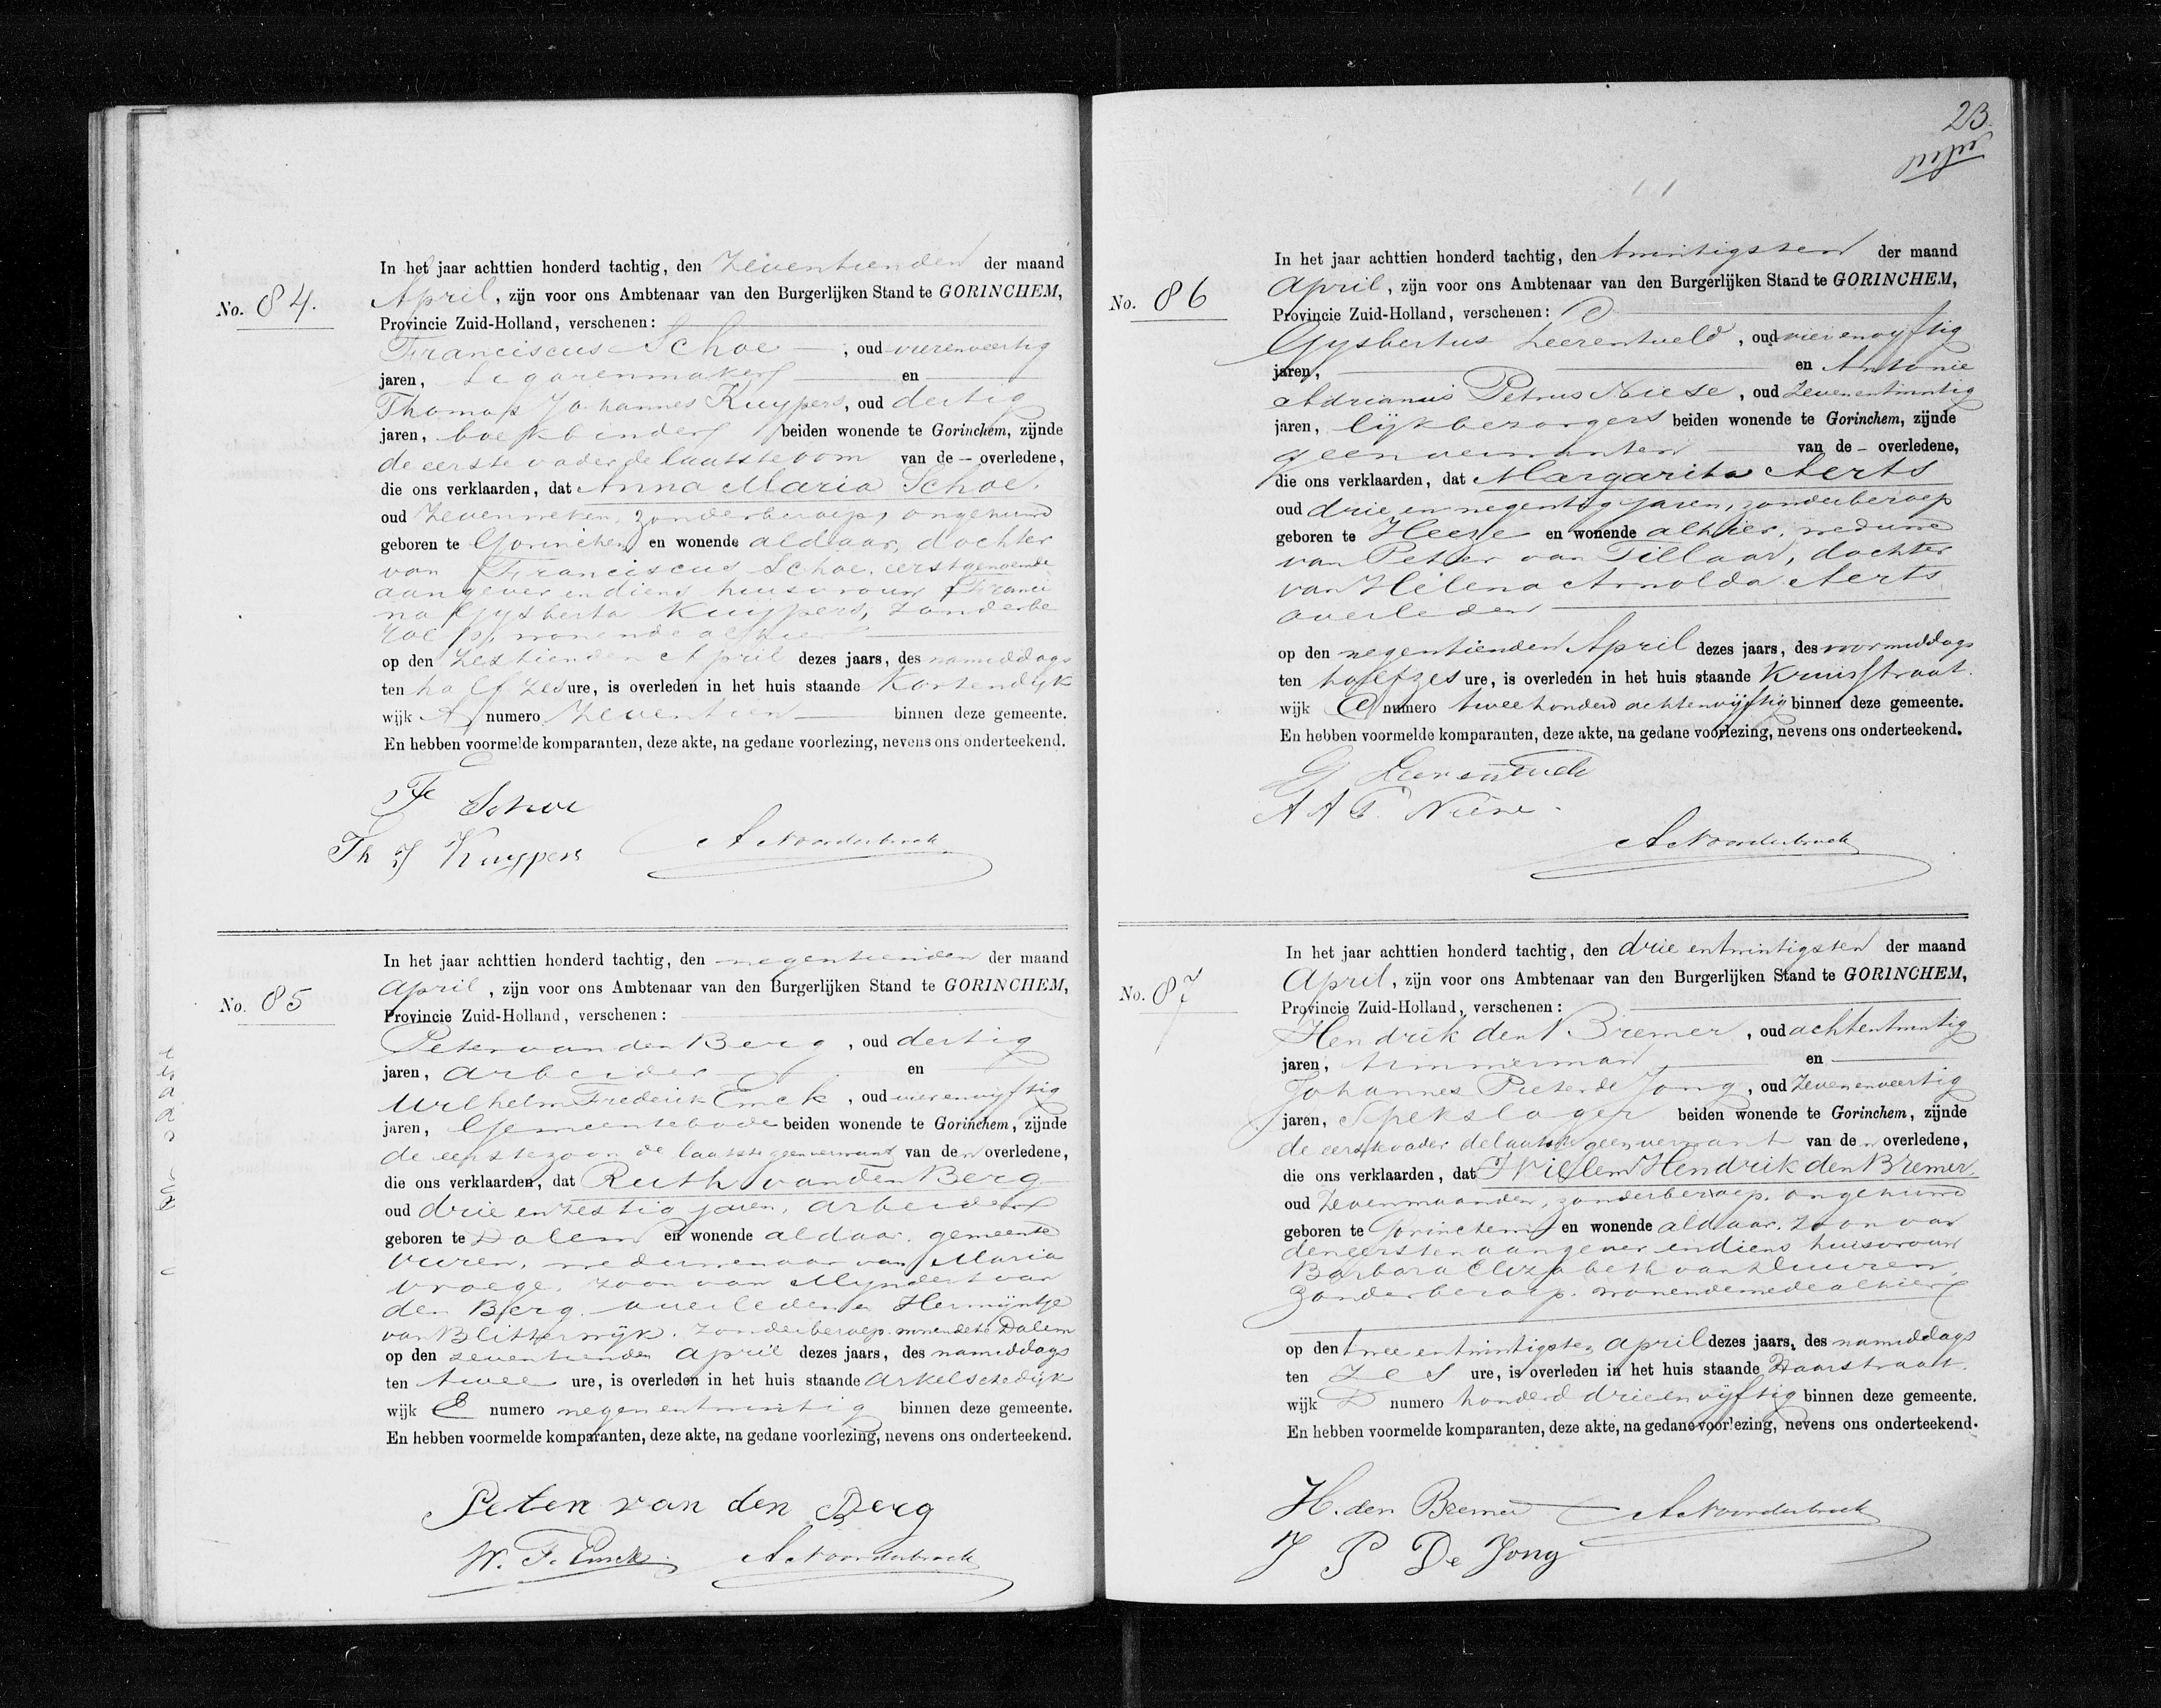 No. 84.
In het jaar achttien honderd tachtig, den Zeventienden der maand
April, zijn voor ons Ambtenaar van den Burgerlijken Stand te GORINCHEM,
Provincie Zuid-Holland, verschenen:
Franciscus Schoe, oud vierenveertig
jaren, Sigarenmaker en
Thomas Johannes Kuypers, oud dertig
jaren, boekbinder beiden wonende te Gorinchem, zijnde
de eerste vader de laatste oom van de - overledene,
die ons verklaarden, dat Anna Maria Schoe.
oud Zevenweken, zonderberoep, ongehuwd
geboren te Gorinchem en wonende aldaar, dochter
van Franciscus Schoe, eerstgenoemde
aangever en diens huisvrouw Franci
na Gysberta Kuypers, zonderbe
roep, wonende alhier
op den Zestienden April dezes jaars, des namiddags
ten half zes ure, is overleden in het huis staande Kortendijk
wijk A numero Zeventien binnen deze gemeente.
En hebben voormelde komparanten, deze akte, na gedane voorlezing, nevens ons onderteekend.
F Schoe
Th J Kuypers A Noorderbroek
No. 85
In het jaar achttien honderd tachtig, den negentienden der maand
April, zijn voor ons Ambtenaar van den Burgerlijken Stand te GORINCHEM,
Provincie Zuid-Holland, verschenen:
Peter van den Berg, oud dertig
jaren, arbeider en
Wilhelm Frederik Emck, oud vierenvyftig
jaren, Gemeentebode beiden wonende te Gorinchem, zijnde
de eerste zoon de laatste geenverwant van den overledene,
die ons verklaarden, dat Ruth van den Berg
oud drie en zestig jaren, arbeider
geboren te Dalem en wonende aldaar, gemeente
Vuren, weduwenaar van Maria
Vroege, zoon van Myndert van
den Berg, overleden en Hermijntje
van Blitterswijk, zonderberoep wonende te Dalem
op den zeventienden April dezes jaars, des namiddags
ten twee ure, is overleden in het huis staande Arkelschedijk
wijk E numero negenentwintig binnen deze gemeente.
En hebben voormelde komparanten, deze akte, na gedane voorlezing, nevens ons onderteekend.
Peter van den Berg
W. F. Emck A Noorderbroek
23.
No. 86
In het jaar achttien honderd tachtig, den twintigsten der maand
April, zijn voor ons Ambtenaar van den Burgerlijken Stand te GORINCHEM,
Provincie Zuid-Holland, verschenen:
Gysbertus Leerentveld, oud vierenvyftig
jaren, en Antonie
Adrianus Petrus Niese, oud Zevenentwintig
jaren, lijkbezorgers beiden wonende te Gorinchem, zijnde
geen verwanten van de - overledene,
die ons verklaarden, dat Margarita Aerts
oud drie en negentig jaren, zonderberoep
geboren te Heeze en wonende alhier, weduwe
van Peter van Tillaar, dochter
van Helena Arnolda Aerts
overleden
op den negentienden April dezes jaars, des voormiddags
ten half zes ure, is overleden in het huis staande Kruisstraat.
wijk C numero tweehonderd achtenvijftig binnen deze gemeente.
En hebben voormelde komparanten, deze akte, na gedane voorlezing, nevens ons onderteekend.
G Leerentveld
A A P. Niese.
A Noorderbroek
No. 87
In het jaar achttien honderd tachtig, den drie entwintigsten der maand
April, zijn voor ons Ambtenaar van den Burgerlijken Stand te GORINCHEM,
Provincie Zuid-Holland, verschenen:
Hendrik den Bremer, oud achtentwintig
jaren, timmerman en
Johannes Pieter de Jong, oud Zevenenveertig
jaren, Spekslager beiden wonende te Gorinchem, zijnde
de eerste vader de laatste geenverwant van den overledene,
die ons verklaarden, dat Willem Hendrik den Bremer.
oud Zevenmaanden, zonderberoep, ongehuwd
geboren te Gorinchem en wonende aldaar, zoon van
den eersten aangever en diens huisvrouw
Barbara Elizabeth van Duuren,
zonderberoep, wonende mede alhier
op den twee entwintigsten April dezes jaars, des namiddags
ten zes ure, is overleden in het huis staande Haarstraat.
wijk D numero honderd drieenvijftig binnen deze gemeente.
En hebben voormelde komparanten, deze akte, na gedane voorlezing, nevens ons onderteekend.
H. den Bremer A Noorderbroek
J P De Jong